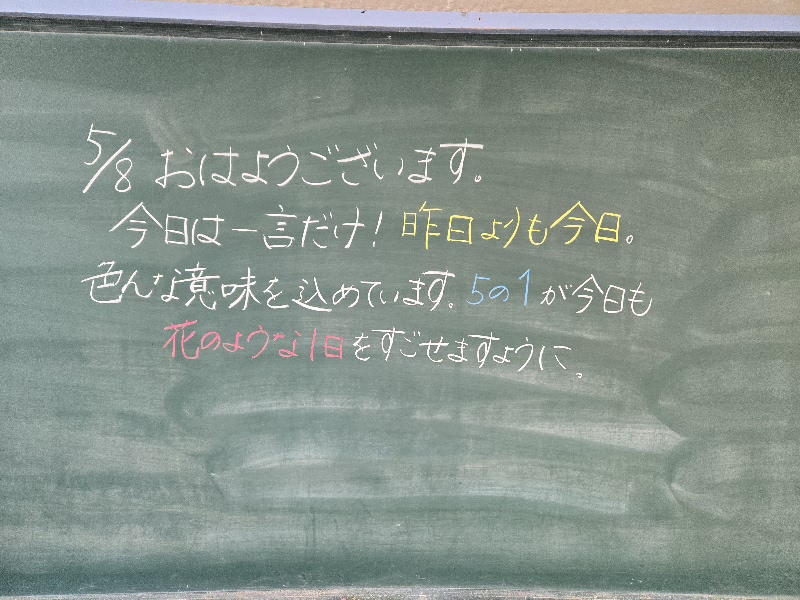 5/8 おはようございます。
今日は一言だけ! 昨日よりも今日。
色んな意味を込めています。5の1が今日も
花のような1日をすごせますように。